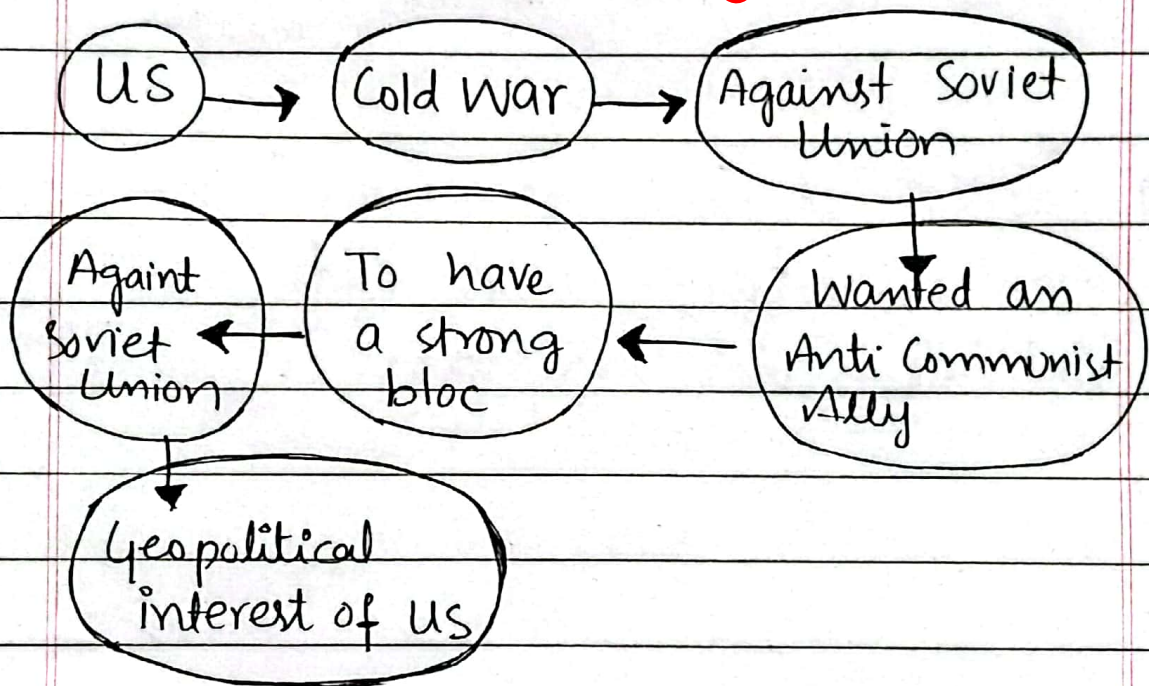 US
Cold War
Against Soviet
Union
Wanted an
Anti Communist
Ally
To have
a strong
bloc
Againt
Soviet
Union
Geopolitical
interest of US